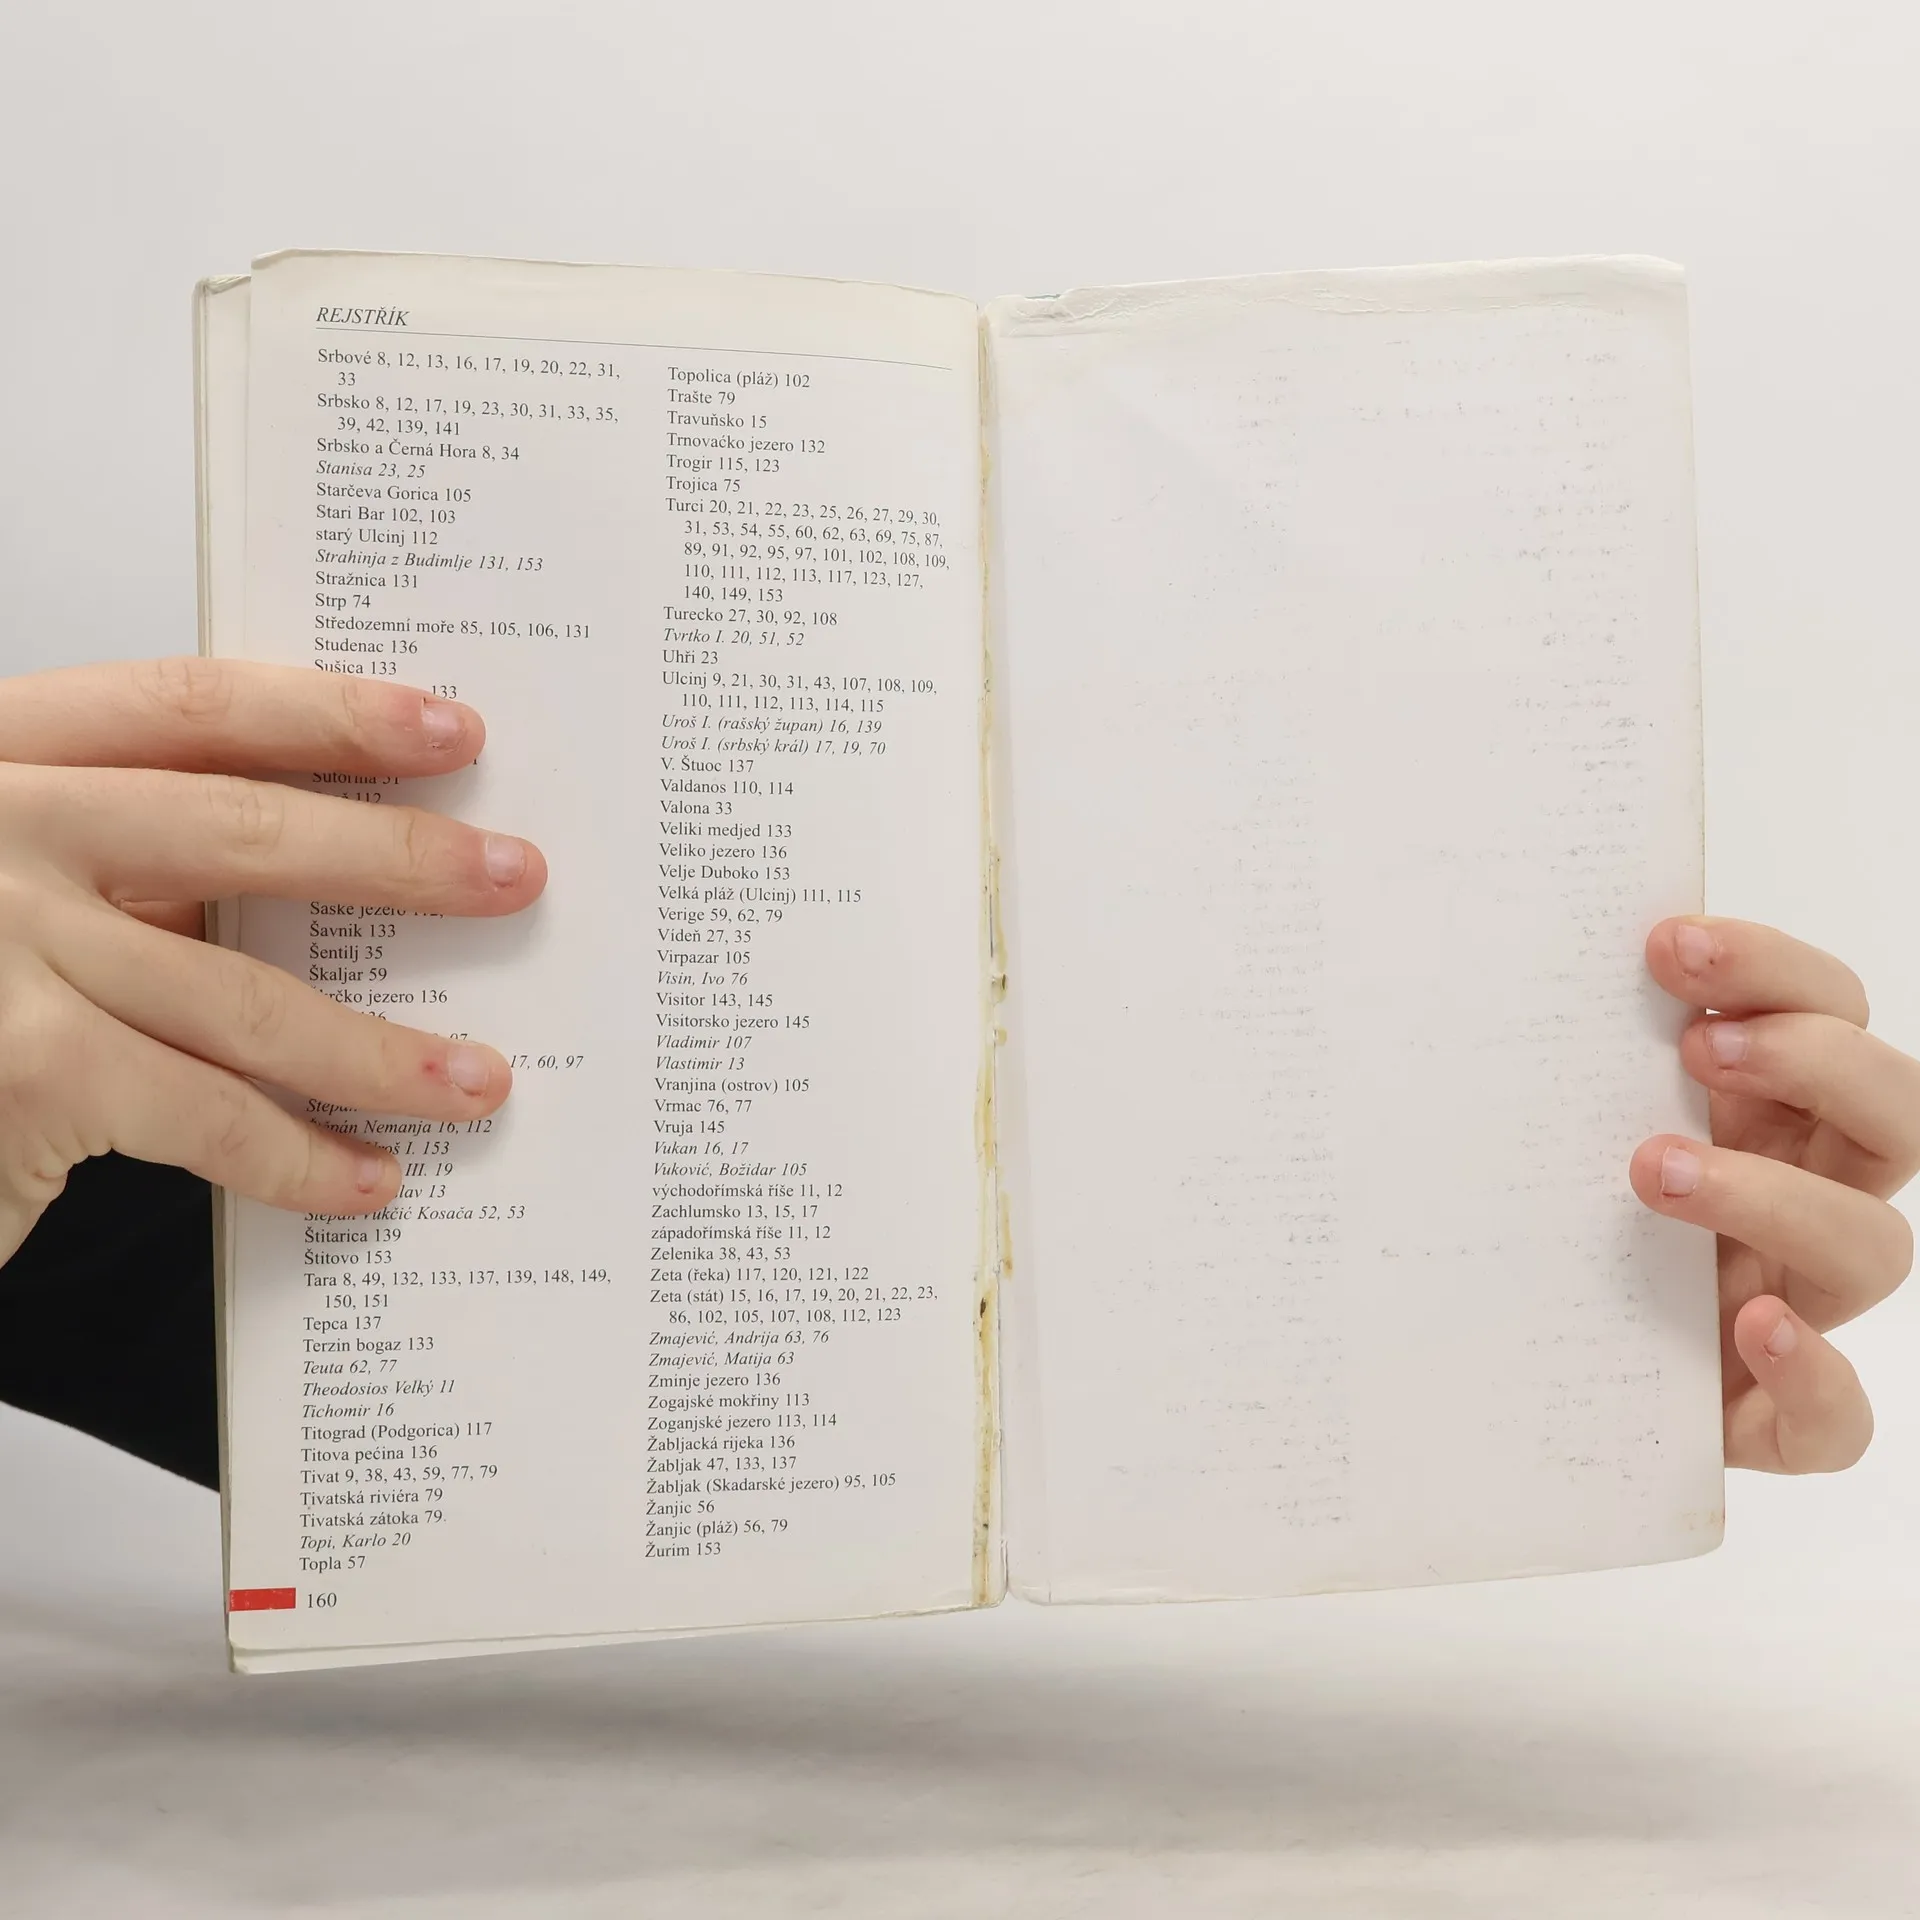 REJSTŘÍK
Srbové 8, 12, 13, 16, 17, 19, 20, 22, 31,
33
Srbsko 8, 12, 17, 19, 23, 30, 31, 33, 35,
39, 42, 139, 141
Srbsko a Černá Hora 8, 34
Stanisa 23, 25
Starčeva Gorica 105
Stari Bar 102, 103
starý Ulcinj 112
Strahinja z Budimlje 131, 153
Stražnica 131
Strp 74
Středozemní moře 85, 105, 106, 131
Studenac 136
Sušica 133
133
Sutorina 51
112
Šaské jezero 112,
Šavnik 133
Šentilj 35
Škaljar 59
Škrčko jezero 136
136
97
17, 60, 97
Štěpán
Štěpán Nemanja 16, 112
Uroš I. 153
III. 19
13
Štěpán Vukčić Kosača 52, 53
Štitarica 139
Štitovo 153
Tara 8, 49, 132, 133, 137, 139, 148, 149,
150, 151
Tepca 137
Terzin bogaz 133
Teuta 62, 77
Theodosios Velký 11
Tichomir 16
Titograd (Podgorica) 117
Titova pećina 136
Tivat 9, 38, 43, 59, 77, 79
Tivatská riviéra 79
Tivatská zátoka 79.
Topi, Karlo 20
Topla 57
Topolica (pláž) 102
Trašte 79
Travuňsko 15
Trnovaćko jezero 132
Trogir 115, 123
Trojica 75
Turci 20, 21, 22, 23, 25, 26, 27, 29, 30,
31, 53, 54, 55, 60, 62, 63, 69, 75, 87,
89, 91, 92, 95, 97, 101, 102, 108, 109,
110, 111, 112, 113, 117, 123, 127,
140, 149, 153
Turecko 27, 30, 92, 108
Tvrtko I. 20, 51, 52
Uhři 23
Ulcinj 9, 21, 30, 31, 43, 107, 108, 109,
110, 111, 112, 113, 114, 115
Uroš I. (rašský župan) 16, 139
Uroš I. (srbský král) 17, 19, 70
V. Štuoc 137
Valdanos 110, 114
Valona 33
Veliki medjed 133
Veliko jezero 136
Velje Duboko 153
Velká pláž (Ulcinj) 111, 115
Verige 59, 62, 79
Vídeň 27, 35
Virpazar 105
Visin, Ivo 76
Visitor 143, 145
Visitorsko jezero 145
Vladimir 107
Vlastimir 13
Vranjina (ostrov) 105
Vrmac 76, 77
Vruja 145
Vukan 16, 17
Vuković, Božidar 105
východořímská říše 11, 12
Zachlumsko 13, 15, 17
západořímská říše 11, 12
Zelenika 38, 43, 53
Zeta (řeka) 117, 120, 121, 122
Zeta (stát) 15, 16, 17, 19, 20, 21, 22, 23,
86, 102, 105, 107, 108, 112, 123
Zmajević, Andrija 63, 76
Zmajević, Matija 63
Zminje jezero 136
Zogajské mokřiny 113
Zoganjské jezero 113, 114
Žabljacká rijeka 136
Žabljak 47, 133, 137
Žabljak (Skadarské jezero) 95, 105
Žanjic 56
Žanjic (pláž) 56, 79
Žurim 153
160